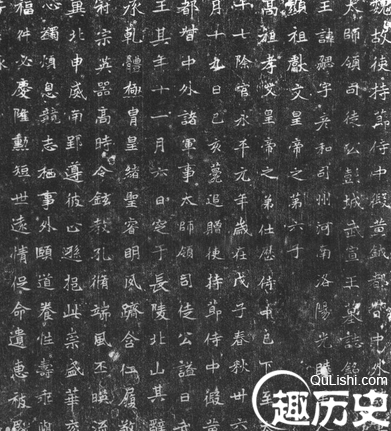 魏故使持節侍中假黃鉞都督中外
太師領司徒公彭城武宣王墓誌銘
王諱勰字彥和司州河南洛陽光睦
顯祖獻文皇帝之第六子
高祖孝文皇帝之弟仕歷侍中已下至
十七除官永平元年歲在戊子春秋卅六
月十九日己亥薨追贈使持節侍中假黃
都督中外諸軍事太師領司徒公謚曰武
王其年十一月六日窆于長陵北山其辭
承乾體極胄皇緒聖睿明夙躋含仁履敬
宗英器高時令鉉教孔脩端風丕映流
冀北申威南郢遵彼止遜挹此崇盛華
心蠲煩息競志栖事外頤道養性壽乖
福舛必慶隆勳短世遠情促命遺惠被
QuLiShi.com
趣历史